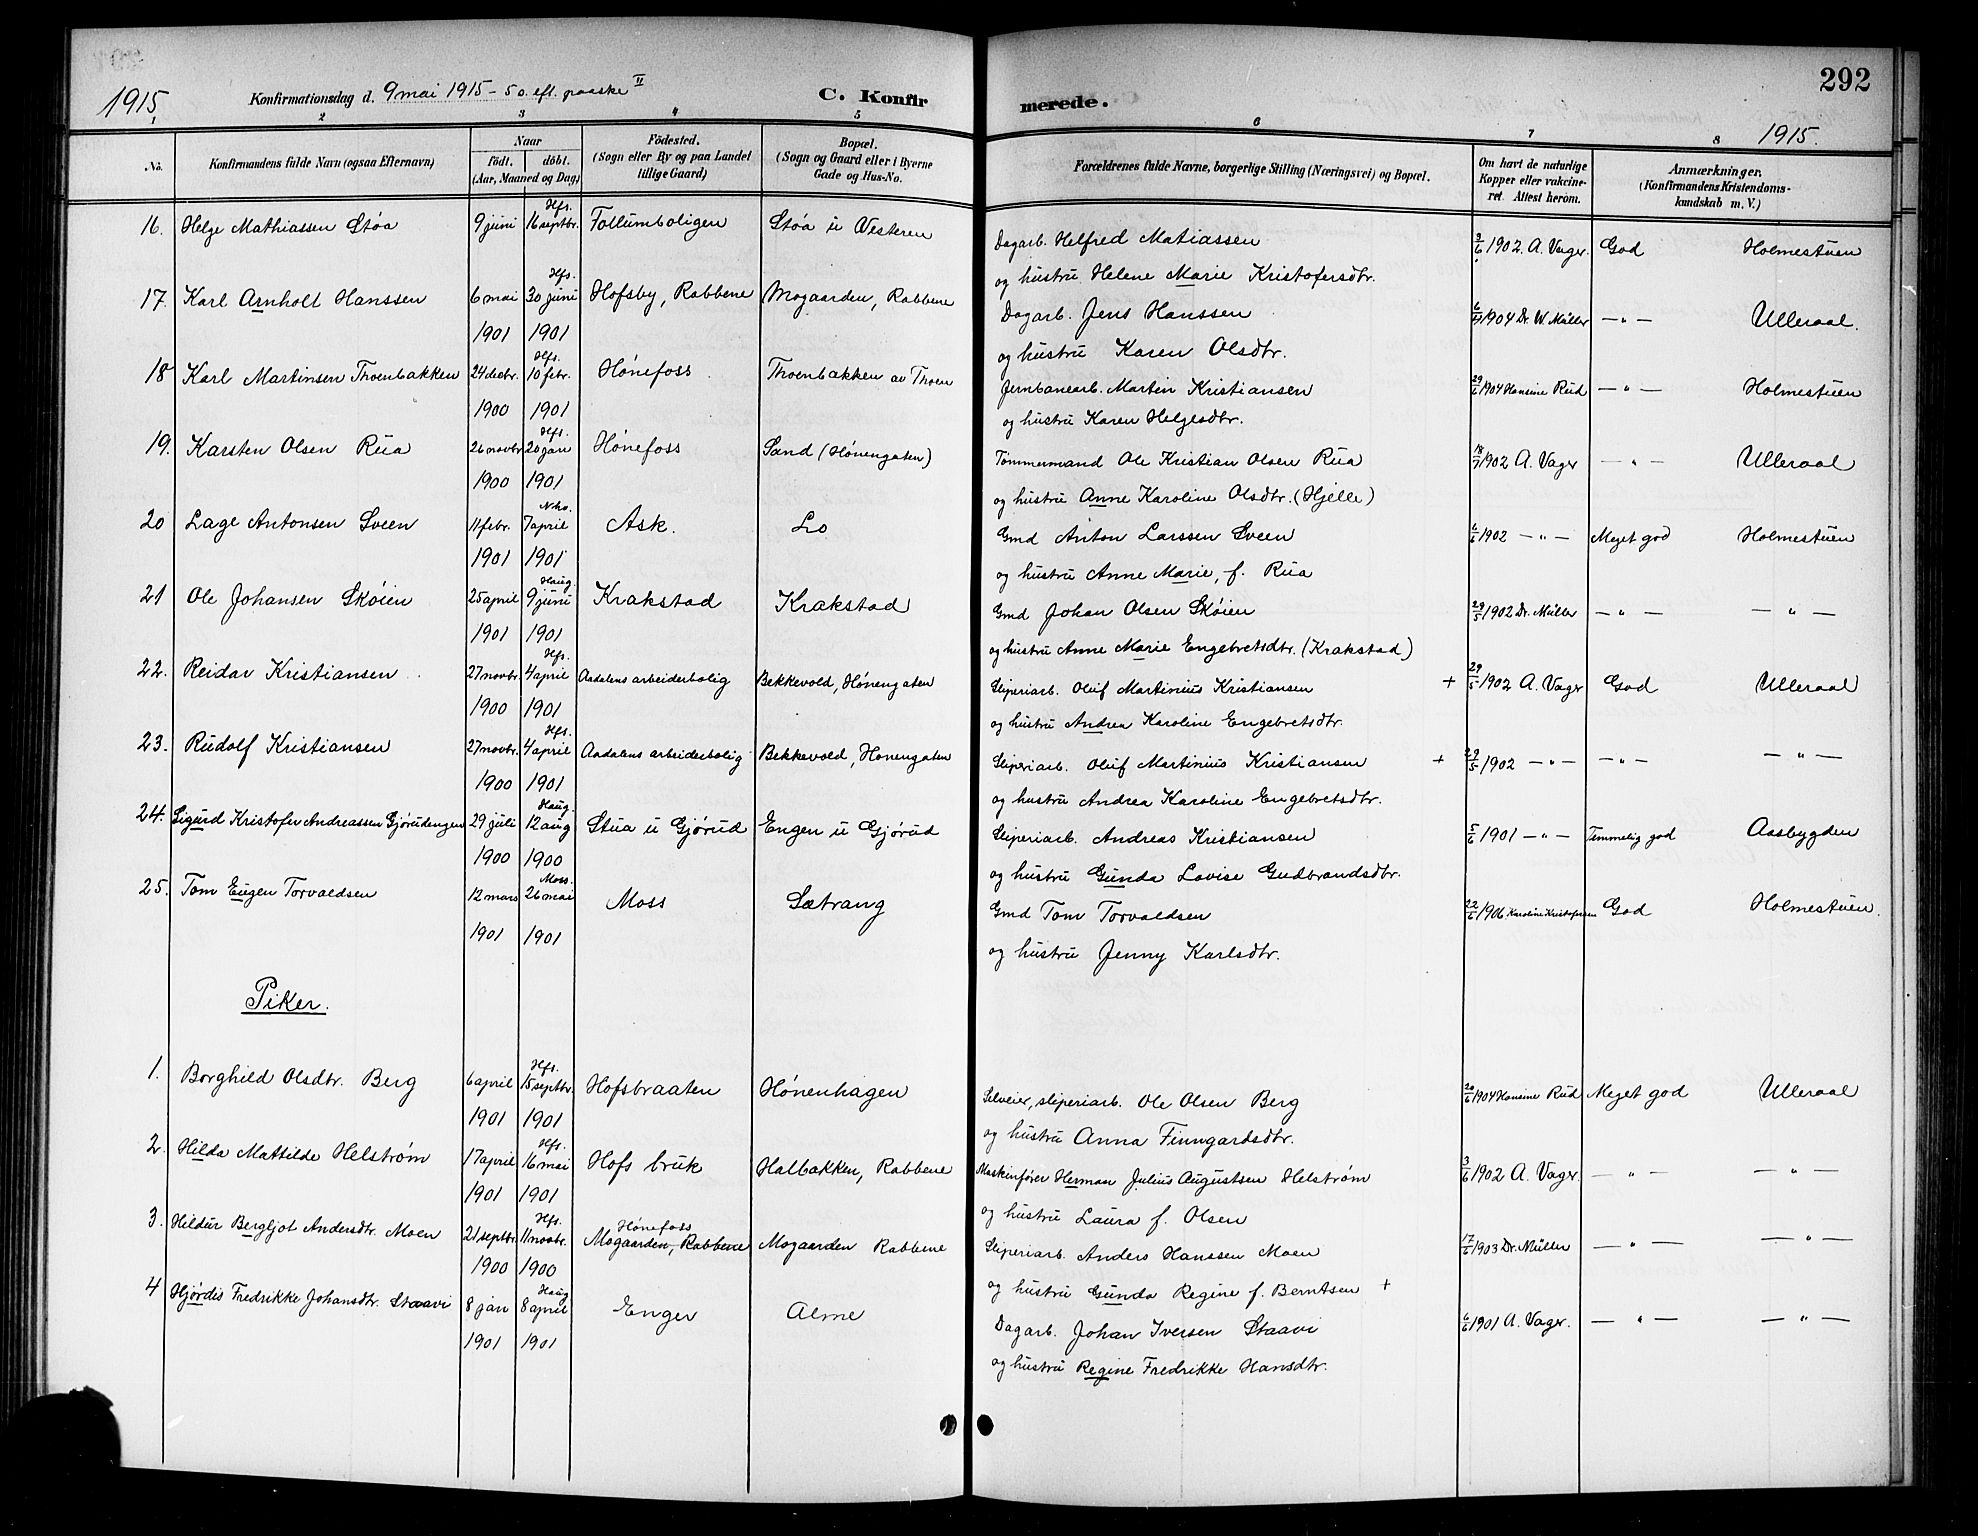 1915. Konfirmationsdag d. 9 mai 1915 - 5 s. eft. paaske II C. Konfir
merede. 292
1915.
1 2 3 4 5 6 7 8
No. Konfirmandens fulde Navn (ogsaa Efternavn) Naar Födested. Bopæl.
födt. döbt. (Sogn eller By og paa Landet (Sogn og Gaard eller i Byerne
(Aar, Maaned og Dag) tillige Gaard) Gade og Hus-No.
Forældrenes fulde Navne, borgerlige Stilling (Næringsvei) og Bopæl.
Om havt de naturlige Kopper eller vakcineret. Attest herom.
Anmærkninger. (Konfirmandens Kristendomskundskab m. V.)
16. Helge Mathiassen Støa 9 juni Hfs. 16 septbr. Follumboligen Støa u Vesteren
Dagarb. Helfred Matiassen 3/6 1902. A. Vager. God Holmestuen
og hustru Helene Marie Kristofersdtr.
17. Karl Arnholt Hanssen 6 mai Hfs. 30 juni Hofsby, Rabbene Mogaarden, Rabbene
1901 1901
Dagarb. Jens Hanssen 1904 Dr. W. Müller — „ — Ulleraal.
og hustru Karen Olsdtr.
18 Karl Martinsen Thoenbakken 24 decbr. Hfs. 10 febr. Hønefoss Thoenbakken av Thoen
1900 1901
Jernbanearb. Martin Kristiansen 29/6 1904 Hansine Rud — „ — Holmestuen
og hustru Karen Helgesdtr.
19. Karsten Olsen Rua 26 novbr Hfs. 20 jan Hønefoss Sand (Hønengaten)
1900 1901
Tømmermand Ole Kristian Olsen Rua 18/7 1902 A. Vager — „ — Ulleraal
og hustru Anne Karoline Olsdtr. (Hjelle)
20 Lage Antonsen Sveen 11 febr. Nho. 7 april Ask. Lo
1901 1901
Gmd Anton Larssen Sveen 6/6 1902 — „ — Meget god Holmestuen
og hustru Anne Marie, f. Rua
21 Ole Johansen Skøien 25 april Haug. 9 juni Krakstad Krakstad
1901 1901
Gmd Johan Olsen Skøien 29/5 1902 Dr. Müller — „ — — „ —
og hustru Anne Marie Engebretsdtr. (Krakstad)
22. Reidar Kristiansen 27 novbr. Hfs. 4 april Aadalens arbeiderbolig Bekkevold, Hønengaten
1900 1901
Sliperiarb. Oluf Martinius Kristiansen + 29/5 1902 A. Vager God Ulleraal
og hustru Andrea Karoline Engebretsdtr.
23. Rudolf Kristiansen 27 novbr. Hfs. 4 april Aadalens arbeiderbolig Bekkevold, Honengaten
1900 1901
Sliperiarb. Oluf Martinius Kristiansen + 29/5 1902 — „ — — „ — — „ —
og hustru Andrea Karoline Engebretsdtr.
24. Sigurd Kristofer Andreassen Gjørudengen 29 juli Haug. 12 aug Stua u Gjørud Engen u Gjørud
1900 1900
Sliperiarb. Andreas Kristiansen 5/6 1901 — „ — Temmelig god Aasbygden
og hustru Gunda Lovise Gudbrandsdtr.
25. Tom Eugen Torvaldsen 12 mars Moss. 26 mai Moss Sætrang
1901 1901
Gmd Tom Torvaldsen 22/6 1906 Karoline Kristofersen God Holmestuen.
og hustru Jenny Karlsdtr.
Piker.
1. Borghild Olsdtr. Berg 6 april Hfs. 15 septbr. Hofsbraaten Hønenhagen
1901 1901
Selveier, sliperiarb. Ole Olsen Berg 20/6 1904 Hansine Rud Meget god Ulleraal
og hustru Anna Finngardsdtr.
2. Hilda Mathilde Helstrøm 17 april Hfs. 16 mai Hofs bruk Halbakken, Rabbene
1901 1901
Maskinfører Herman Julius Augustsen Helstrøm 3/6 1902 A. Vager. — „ — — „ —
og hustru Laura f. Olsen
3. Hildur Bergljot Andersdtr. Moen 21 septbr. Hfs. 11 novbr. Hønefoss Mogaarden, Rabbene Mogaarden Rabbene
1900 1900
Sliperiarb. Anders Hanssen Moen 17/6 1903 Dr. Müller — „ — — „ —
og hustru Gunda Regine f. Berntsen +
4 Hjørdis Fredrikke Johansdtr. Staavi 8 jan Haug 8 april Enger Alme
1901 1901
Dagarb. Johan Iversen Staavi 6/6 1901 A. Vager. — „ — — „ —
og hustru Regine Fredrikke Hansdtr.